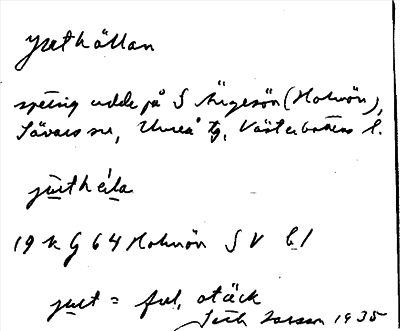 Juthällan
spetsig udde på S Ängesön (Holmön),
Sävars sn, Umeå tg, Västerbottens l.
juthéla
19 K G 64 Holmön SV b1
jut = ful, otäck
1935